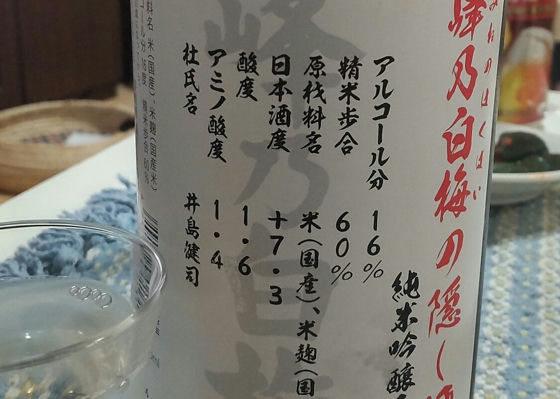 峰乃白梅の隠し酒
みねのはくばい
純米吟醸
アルコール分 16%
精米歩合 60%
原材料名 米(国産)、米麹(国
日本酒度 +7.3
酸度 1.6
アミノ酸度 1.4
杜氏名 井島健司
料名 米(国産)、米麹(国産米)
コール分 16度 精米歩合 60%
峰乃白梅